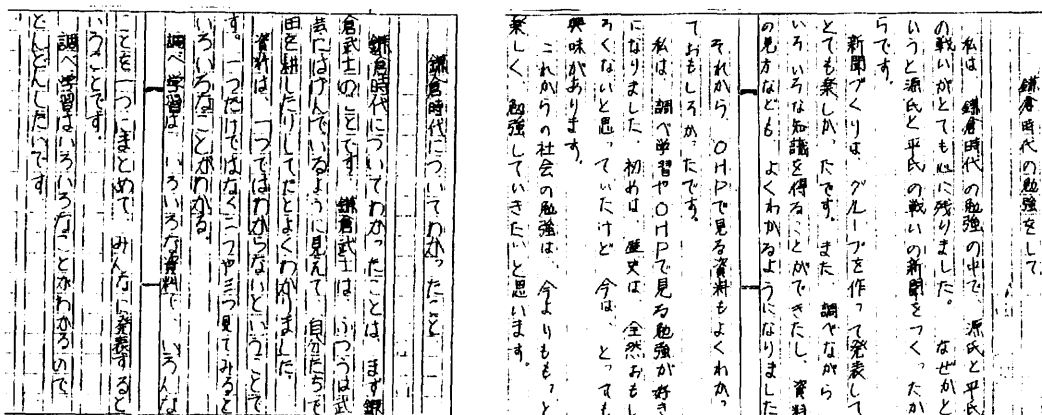 鎌倉時代の勉強をして
私は、鎌倉時代の勉強の中で、源氏と平氏
の戦いがとても心に残りました。なぜかと
いうと源氏と平氏の戦いの新聞をつくったか
らです。
新聞づくりは、グループを作って発表して
とても楽しかったです。また、調べながら
いろいろな知識を得ることができたし、資料
の見方なども、よくわかるようになりました
それから、OHPで見る資料もよくわかっ
ておもしろかったです。
私は、調べ学習やOHPで見る勉強が好き
になりました。初めは、歴史は、全然おもし
ろくないと思っていたけど、今は、とっても
興味があります。
これからの社会の勉強は、今よりももっと
楽しく、勉強していきたいと思います。
鎌倉時代についてわかったこと
鎌倉時代についてわかったことは、まず鎌
倉武士のことです。鎌倉武士は、ふつうは武
芸にはげんでいるように見えて、自分たちで
田を耕したりしてたとよくわかりました。
資料は、一つではわからないということで
す。一つだけではなく二つや三つ見てみると
いろいろなことがわかる。
調べ学習は、いろいろな資料で、いろんな
ことを一つにまとめて、みんなに発表すると
いうことです。
調べ学習はいろいろなことがわかるので
どんどんしたいです。